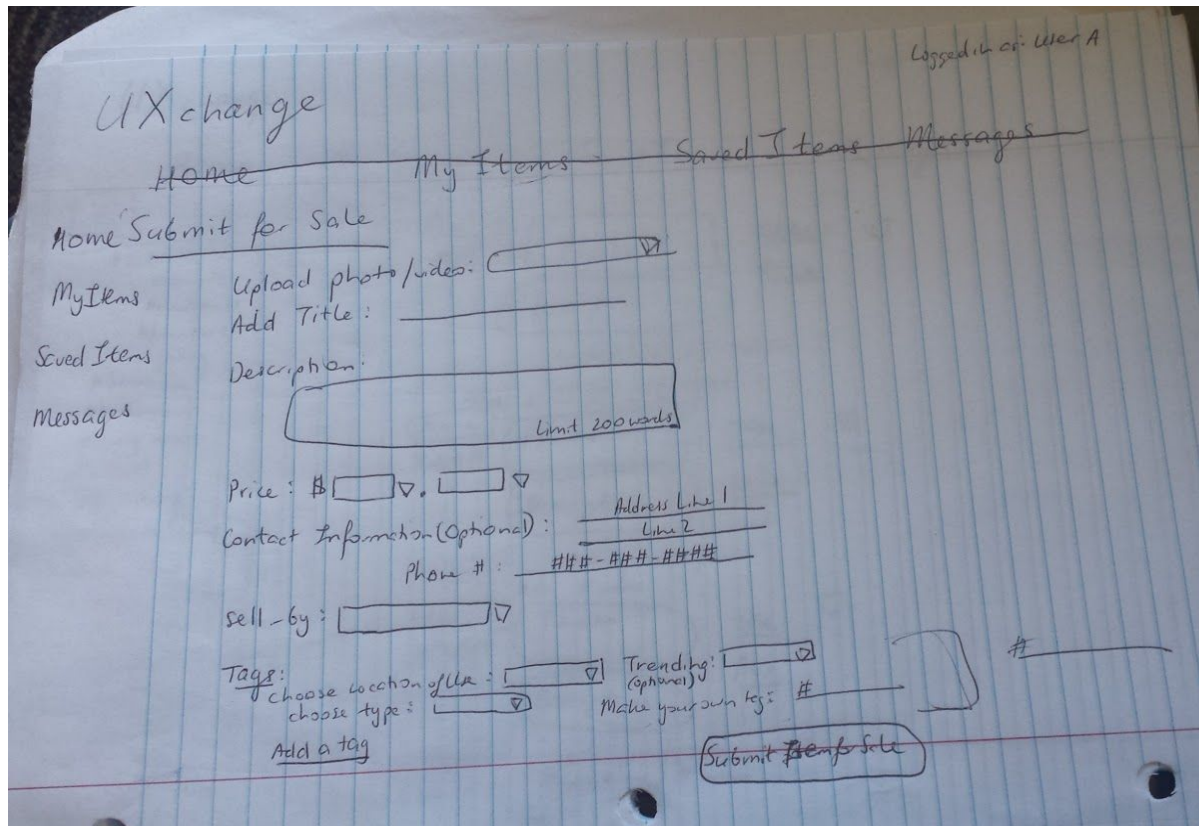 Logged in as: User A
UXchange
Home My Items Saved Items Messages
Home Submit for Sale
My Items
Saved Items
Messages
Upload photo/video:
Add Title:
Description:
Limit 200 words
Price: $ .
Contact Information (Optional): Address Line 1
Line 2
Phone #: ###-###-####
Sell-by:
Tags:
choose location of Use: Trending:
(optional)
choose type: Make your own tag: #
#
Add a tag
Submit Item for Sale